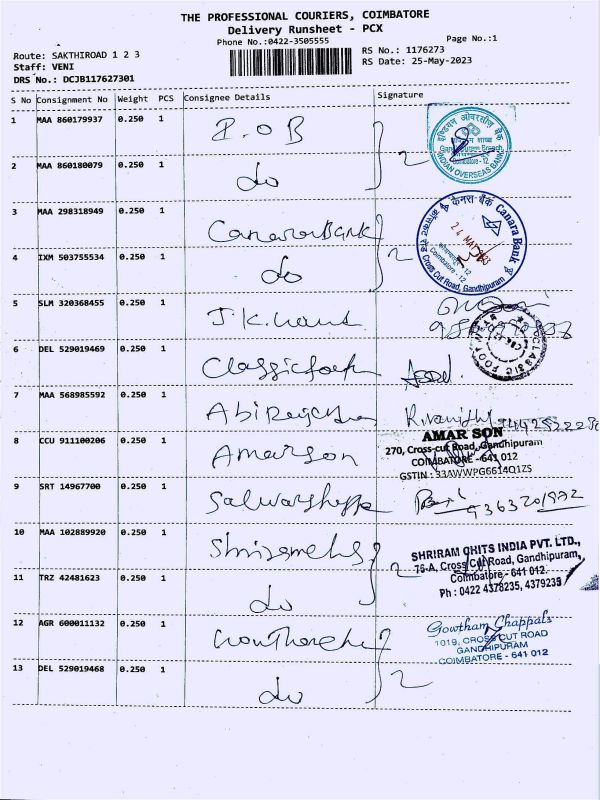 THE PROFESSIONAL COURIERS, COIMBATORE
Delivery Runsheet - PCX
Phone No.:0422-3505555
Page No.:1
Route: SAKTHIROAD 1 2 3
RS No.: 1176273
Staff: VENI
RS Date: 25-May-2023
DRS No.: DCJB117627301
S No Consignment No Weight PCS Consignee Details Signature
1 MAA 860179937 0.250 1
इण्डियन ओवरसीज़ बैंक
INDIAN OVERSEAS BANK
Coimbatore - 12
2 MAA 860180079 0.250 1 do 2
3 MAA 298318949 0.250 1 Canara Bank
केनरा बैंक Canara Bank
24 MAY
Coimbatore - 12
Cross Cut Road, Gandhipuram
4 IXM 503755534 0.250 1 do 2
5 SLM 320368455 0.250 1 J.K.
6 DEL 529019469 0.250 1
CLASSIC FOOT WEAR
7 MAA 568985592 0.250 1
8 CCU 911100206 0.250 1 Amarson
AMAR SON
270, Cross-cut Road, Gandhipuram
COIMBATORE - 641 012
GSTIN : 33AWWPG6614Q1ZS
9 SRT 14967700 0.250 1
10 MAA 102889920 0.250 1
SHRIRAM CHITS INDIA PVT. LTD.,
76-A, Cross Cut Road, Gandhipuram,
Coimbatore - 641 012.
Ph : 0422 4378235, 4379235
11 TRZ 42481623 0.250 1 do 2
12 AGR 600011132 0.250 1
Gowtham Chappals
1019, CROSS CUT ROAD
GANDHIPURAM
COIMBATORE - 641 012
13 DEL 529019468 0.250 1 do 2